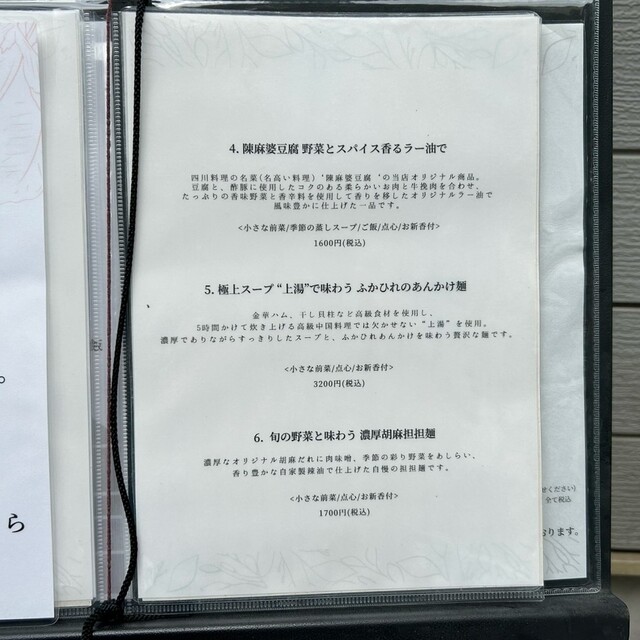 4. 陳麻婆豆腐 野菜とスパイス香るラー油で
四川料理の名菜(名高い料理) ‘陳麻婆豆腐 ‘の当店オリジナル商品。
豆腐と、酢豚に使用したコクのある柔らかいお肉と牛挽肉を合わせ、
たっぷりの香味野菜と香辛料を使用して香りを移したオリジナルラー油で
風味豊かに仕上げた一品です。
<小さな前菜/季節の蒸しスープ/ご飯/点心/お新香付>
1600円(税込)
5. 極上スープ “上湯”で味わう ふかひれのあんかけ麺
金華ハム、干し貝柱など高級食材を使用し、
5時間かけて炊き上げる高級中国料理では欠かせない “上湯” を使用。
濃厚でありながらすっきりしたスープと、ふかひれあんかけを味わう贅沢な麺です。
<小さな前菜/点心/お新香付>
3200円(税込)
6. 旬の野菜と味わう 濃厚胡麻担担麺
濃厚なオリジナル胡麻だれに肉味噌、季節の彩り野菜をあしらい、
香り豊かな自家製辣油で仕上げた自慢の担担麺です。
<小さな前菜/点心/お新香付>
1700円(税込)
。
ら
せください)
全て税込
おります。